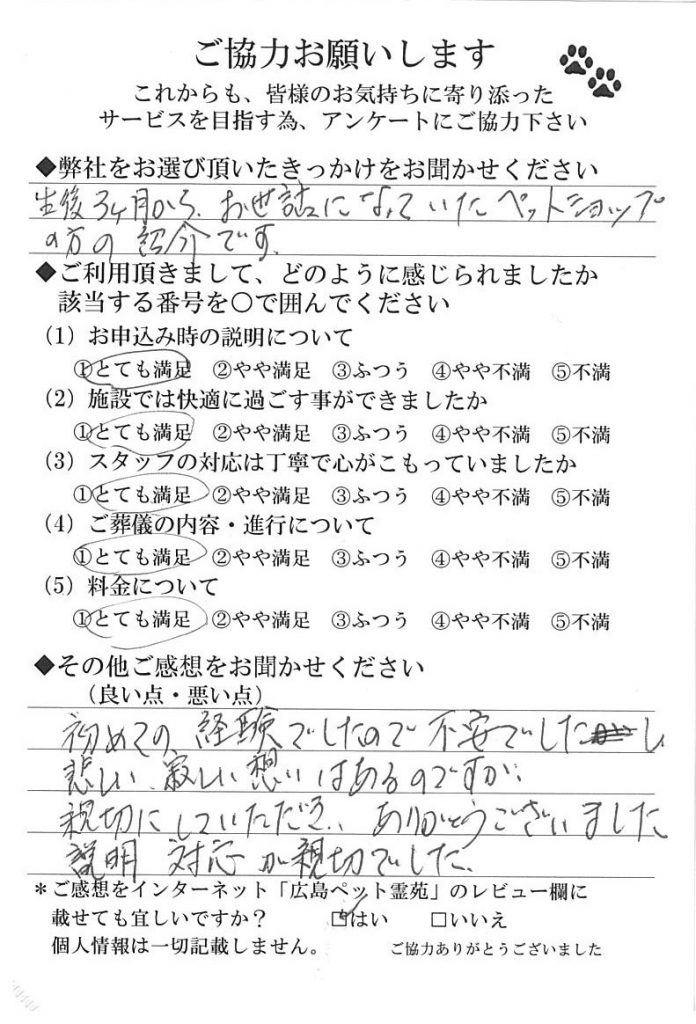 ご協力お願いします
これからも、皆様のお気持ちに寄り添った
サービスを目指す為、アンケートにご協力下さい
◆弊社をお選び頂いたきっかけをお聞かせください
生後3ヶ月から、お世話になっていたペットショップ
の方の紹介です。
◆ご利用頂きまして、どのように感じられましたか
該当する番号を〇で囲んでください
(1) お申込み時の説明について
①とても満足 ②やや満足 ③ふつう ④やや不満 ⑤不満
(2) 施設では快適に過ごす事ができましたか
①とても満足 ②やや満足 ③ふつう ④やや不満 ⑤不満
(3) スタッフの対応は丁寧で心がこもっていましたか
①とても満足 ②やや満足 ③ふつう ④やや不満 ⑤不満
(4) ご葬儀の内容・進行について
①とても満足 ②やや満足 ③ふつう ④やや不満 ⑤不満
(5) 料金について
①とても満足 ②やや満足 ③ふつう ④やや不満 ⑤不満
◆その他ご感想をお聞かせください
（良い点・悪い点）
初めての経験でしたので不安でしたし
悲しい、寂しい想いはあるのですが、
親切にしていただき、ありがとうございました
説明 対応が親切でした。
＊ご感想をインターネット「広島ペット霊苑」のレビュー欄に
載せても宜しいですか？ ☑はい □いいえ
個人情報は一切記載しません。 ご協力ありがとうございました